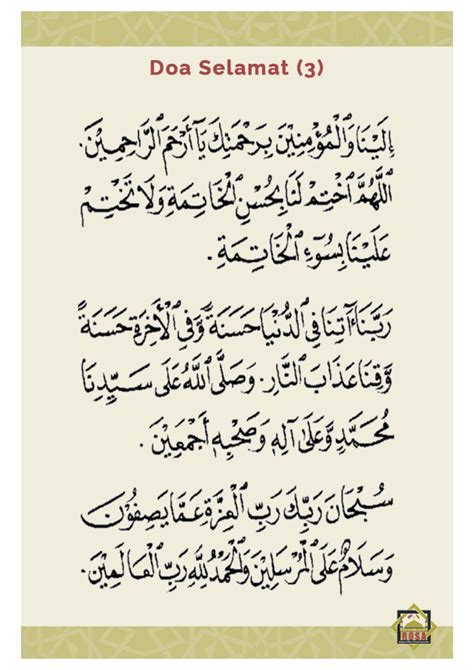 Doa Selamat (3)
إِلَيْنَا وَالْمُؤْمِنِيْنَ بِرَحْمَتِكَ يَا أَرْحَمَ الرَّاحِمِيْنَ.
اَللّٰهُمَّ اخْتِمْ لَنَا بِحُسْنِ الْخَاتِمَةِ وَلَا تَخْتِمْ
عَلَيْنَا بِسُوْءِ الْخَاتِمَةِ.
رَبَّنَا ءَاتِنَا فِي الدُّنْيَا حَسَنَةً وَّفِي الْأَخِرَةِ حَسَنَةً
وَّقِنَا عَذَابَ النَّارِ. وَصَلَّى اللّٰهُ عَلَى سَيِّدِنَا
مُحَمَّدٍ وَّعَلَى آلِهِ وَصَحْبِهِ أَجْمَعِيْنَ.
سُبْحَانَ رَبِّكَ رَبِّ الْعِزَّةِ عَمَّا يَصِفُوْنَ
وَسَلَامٌ عَلَى الْمُرْسَلِيْنَ وَالْحَمْدُ لِلّٰهِ رَبِّ الْعَالَمِيْنَ.
ROSA